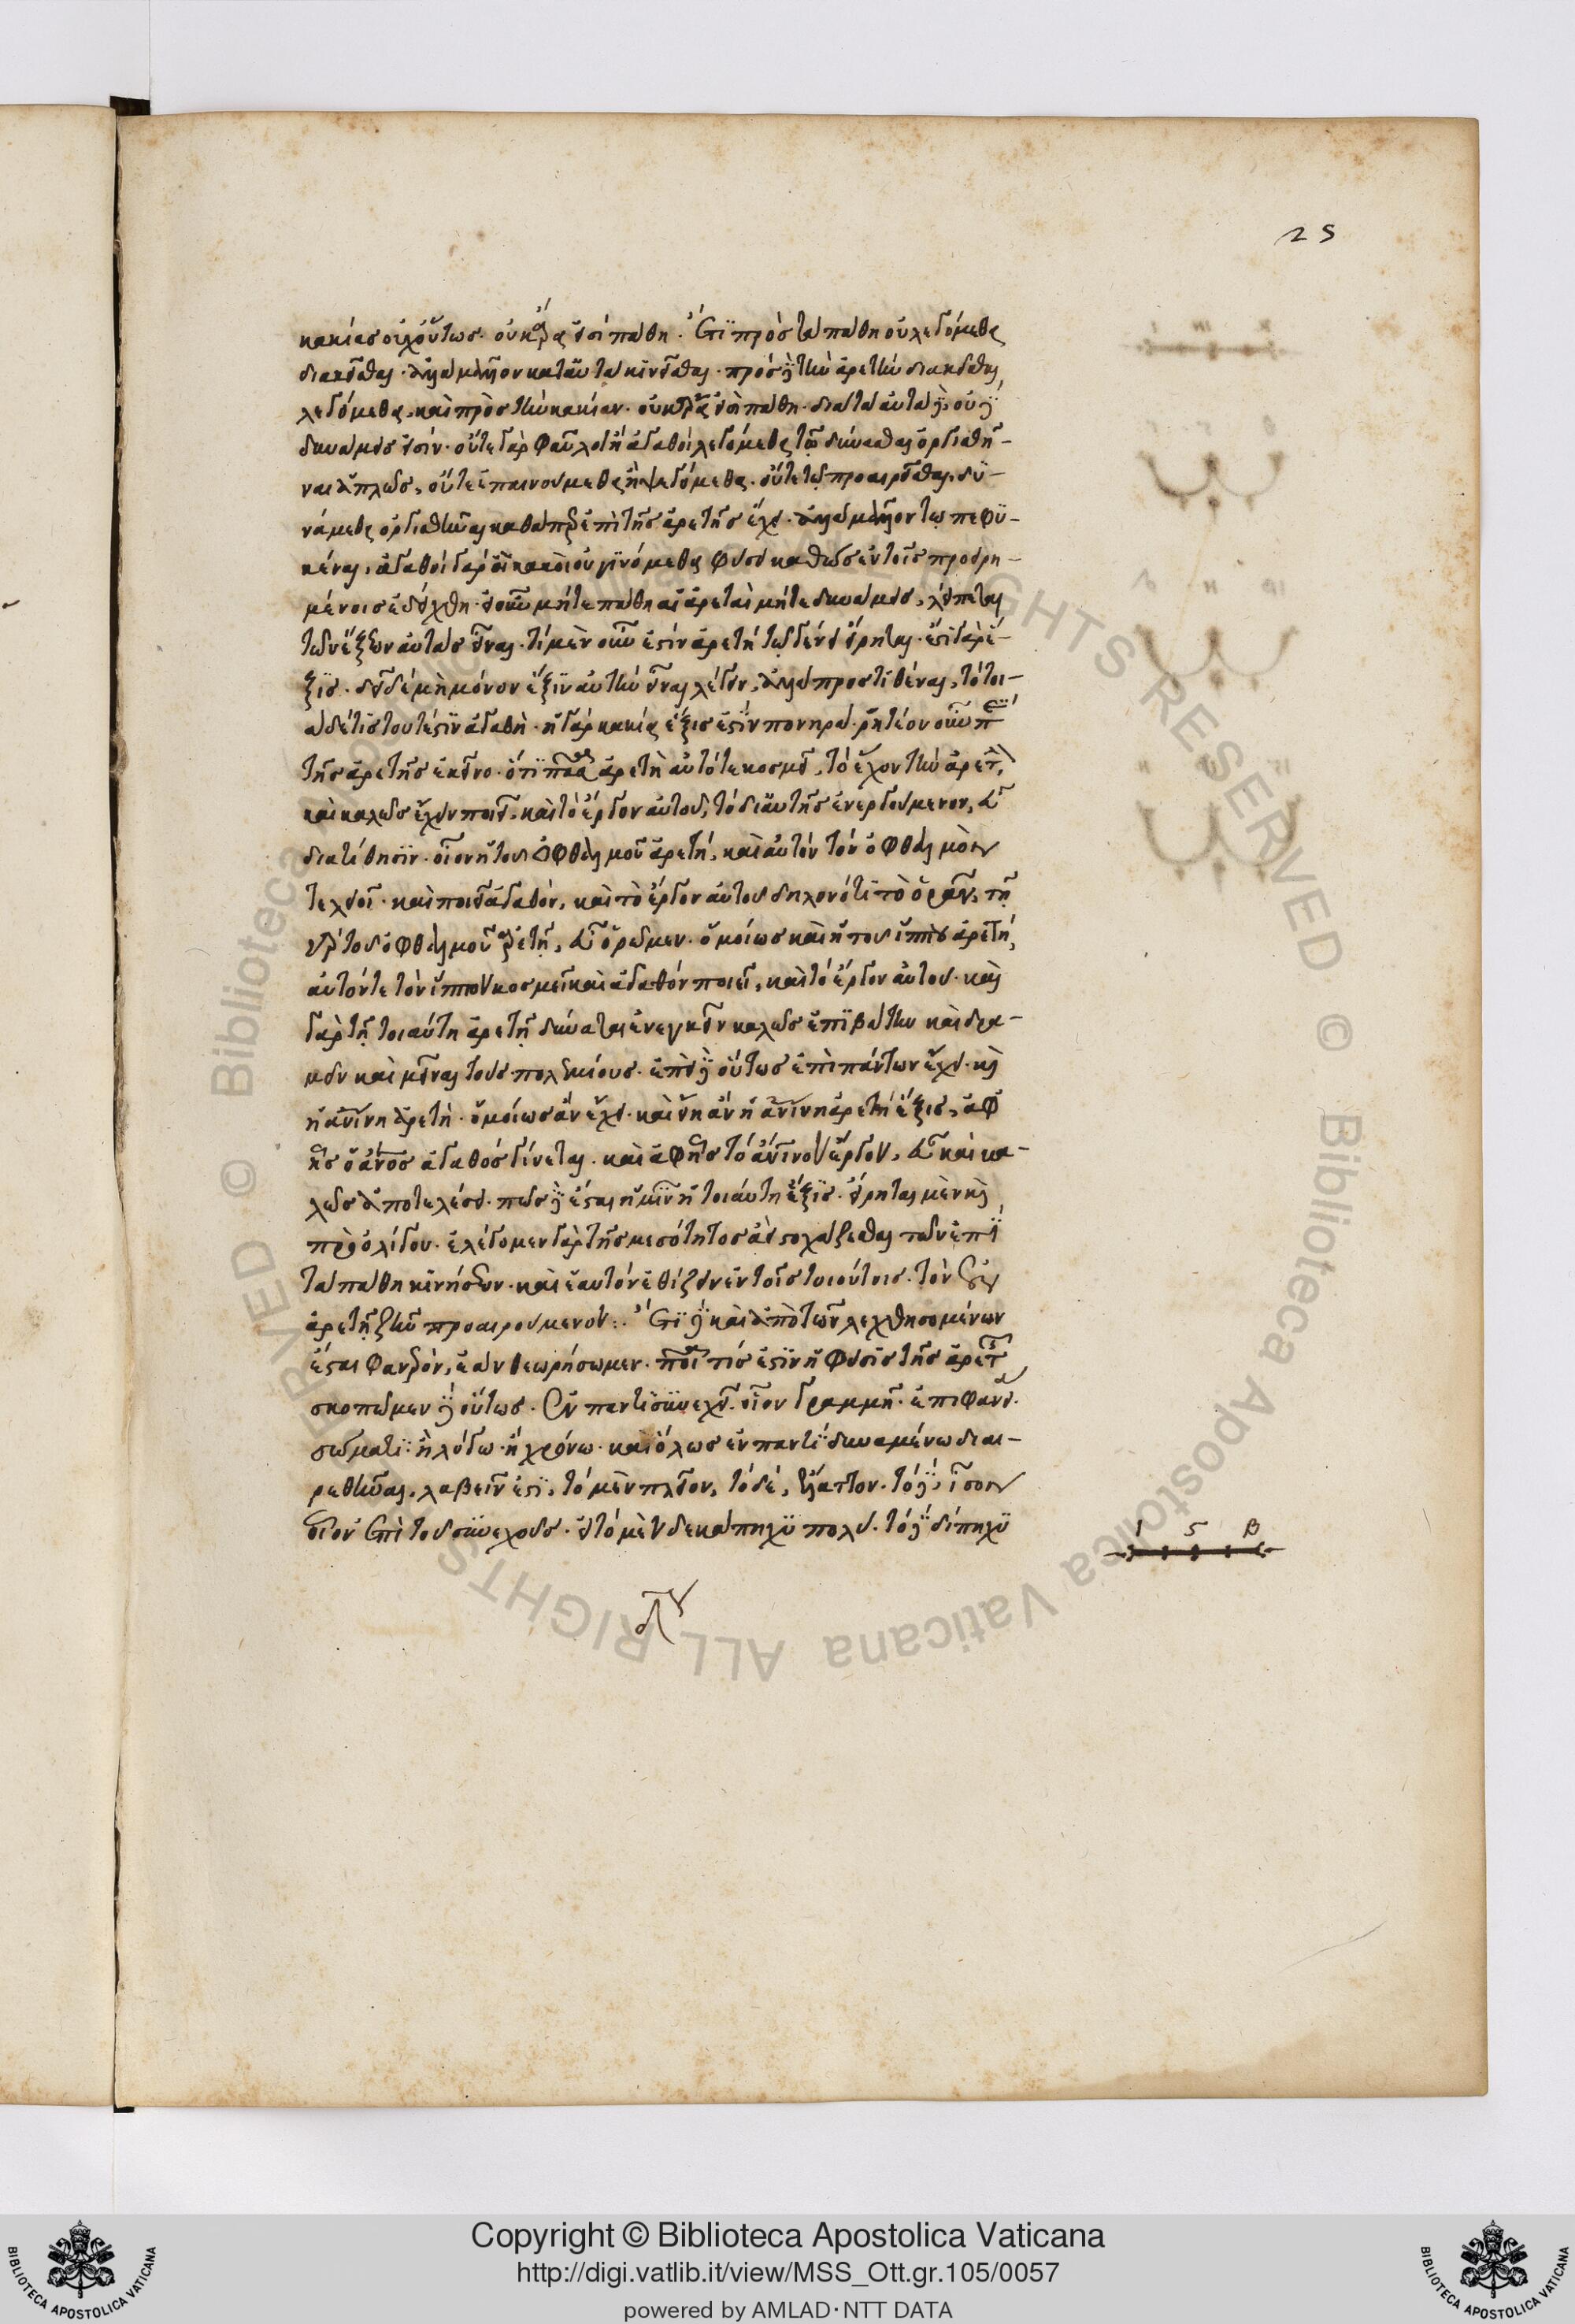 25
κακίας οὐχ οὕτως. οὐκ ἄρα εἰσὶ πάθη. Ἔτι πρὸς τὰ πάθη οὐ λεγόμεθα
διακεῖσθαι. ἀλλὰ μᾶλλον κατ' αὐτὰ κινεῖσθαι. πρὸς δὲ τὴν ἀρετὴν διακεῖσθαι
λεγόμεθα, καὶ πρὸς τὴν κακίαν. οὐκ ἄρα εἰσὶ πάθη. διὰ τὰ αὐτὰ δὲ, οὐδὲ
δυνάμεις εἰσίν. οὔτε γὰρ φαῦλοι ἢ ἀγαθοὶ λεγόμεθα τῷ δύνασθαι ὀργισθῆ-
ναι ἁπλῶς, οὔτε ἐπαινούμεθα ἢ ψεγόμεθα. οὔτε τῷ προαιρεῖσθαι, δυ-
νάμεθα ὀργισθῆναι καθάπερ ἐπὶ τῆς ἀρετῆς ἔχει. ἀλλὰ μᾶλλον τῷ πεφυ-
κέναι, ἀγαθοὶ γὰρ ἢ κακοὶ οὐ γινόμεθα φύσει καθὼς ἐν τοῖς προειρη-
μένοις ἐδείχθη. εἰ οὖν μήτε πάθη αἱ ἀρεταὶ μήτε δυνάμεις, λείπεται
τῶν ἕξεων αὐτὰς εἶναι. τί μὲν οὖν ἐστὶν ἀρετὴ τῷ γένει εἴρηται. ἔστι γὰρ ἕ-
ξις. δεῖ δὲ μὴ μόνον ἕξιν αὐτὴν εἶναι λέγειν, ἀλλὰ προστιθέναι, τὸ τοι-
άδε τίς τουτέστιν ἀγαθὴ. ἡ γὰρ κακία ἕξις ἐστὶν πονηρά. ῥητέον οὖν περὶ
τῆς ἀρετῆς ἐκεῖνο. ὅτι πᾶσα ἀρετὴ αὐτό τε κοσμεῖ, τὸ ἔχον τὴν ἀρετὴν,
καὶ καλῶς ἔχειν ποιεῖ, καὶ τὸ ἔργον αὐτοῦ, τὸ δι' αὐτῆς ἐνεργούμενον, εὖ
διατίθησιν. οἷον ἡ τοῦ ὀφθαλμοῦ ἀρετή, καὶ αὐτὸν τὸν ὀφθαλμὸν
τελειοῖ. καὶ ποιεῖ ἀγαθόν, καὶ τὸ ἔργον αὐτοῦ δηλονότι τὸ ὁρᾶν, τῇ
γὰρ τοῦ ὀφθαλμοῦ ἀρετῇ, εὖ ὁρῶμεν. ὁμοίως καὶ ἡ τοῦ ἵππου ἀρετή,
αὐτόν τε τὸν ἵππον κοσμεῖ καὶ ἀγαθὸν ποιεῖ, καὶ τὸ ἔργον αὐτοῦ. καὶ
γὰρ τῇ τοιαύτῃ ἀρετῇ δύναται ἐνεγκεῖν καλῶς ἐπιβάτην καὶ δρα-
μεῖν καὶ μεῖναι τοὺς πολεμίους. ἐπεὶ δὲ οὕτως ἐπὶ πάντων ἔχει. καὶ
ἡ ἀνθρωπίνη ἀρετὴ. ὁμοίως ἂν ἔχει. καὶ εἴη ἂν ἡ ἀνθρωπίνη ἀρετὴ ἕξις, ἀφ'
ἧς ὁ ἄνθρωπος ἀγαθὸς γίνεται. καὶ ἀφ' ἧς τὸ ἀνθρώπινον ἔργον, εὖ καὶ κα-
λῶς ἀποτελέσει. πῶς δὲ ἔσται ἡμῖν ἡ τοιαύτη ἕξις. εἴρηται μὲν καὶ
πρὸ ὀλίγου. ἐλέγομεν γὰρ τῆς μεσότητος ἀεὶ στοχάζεσθαι τῶν ἐπὶ
τὰ πάθη κινήσεων. καὶ ἑαυτὸν ἐθίζειν ἐν τοῖς τοιούτοις. τὸν ἐν
ἀρετῇ ζῆν προαιρούμενον. Ἔτι δὲ καὶ ἀπὸ τῶν λεχθησομένων
ἔσται φανερόν, ἐὰν θεωρήσωμεν. ποία τίς ἐστὶν ἡ φύσις τῆς ἀρετῆς
σκοπῶμεν δὲ οὕτως. Ἐν παντὶ συνεχεῖ. οἷον γραμμῇ. ἐπιφανείᾳ.
σώματι. ἢ λόγω. ἢ χρόνω. καὶ ὅλως ἐν παντὶ δυναμένω διαι-
ρεθῆναι, λαβεῖν ἔστι, τὸ μὲν πλεῖον, τὸ δὲ, ἔλαττον. τὸ δὲ, ἴσον
οἷον ἐπὶ τοῦ συνεχοῦς. εἰ τὸ μὲν δεκάπηχυ πολύ. τὸ δὲ δίπηχυ
ι ς β